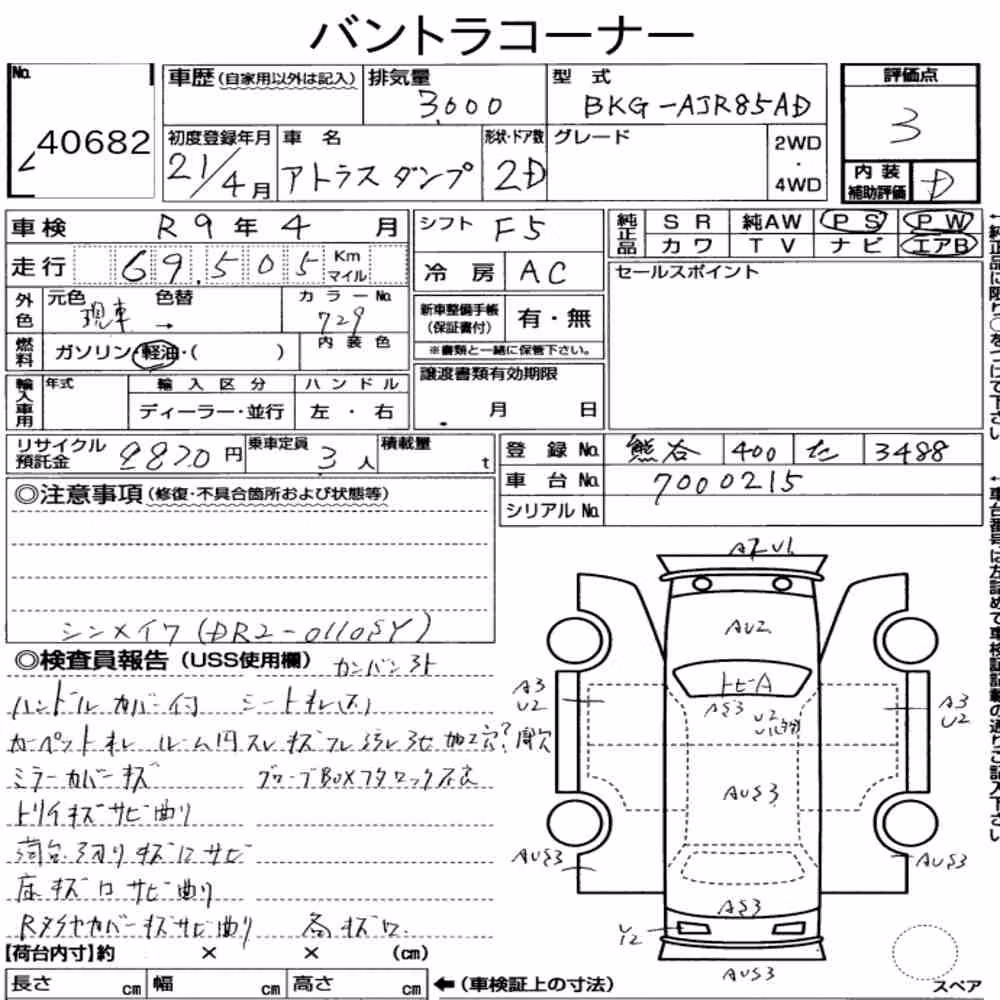 バントラコーナー
No. 40682
車歴(自家用以外は記入) 排気量 3,000 型式 BKG-AJR85AD 評価点 3
初度登録年月 21/4月 車名 アトラスダンプ 形状・ドア数 2D グレード 2WD・4WD 内装補助評価 D
車検 R9年4月 シフト F5 純正品 SR 純AW PS PW
カワ TV ナビ エアB
走行 69,505 Km マイル 冷房 AC セールスポイント
外色 元色 現車 色替 → カラーNo. 729 新車整備手帳(保証書付) 有・無
燃料 ガソリン・軽油・( ) 内装色 ※書類と一緒に保管下さい。
輸入車用 年式 輸入区分 ハンドル 譲渡書類有効期限
ディーラー・並行 左・右 月 日
リサイクル預託金 9870円 乗車定員 3人 積載量 t 登録No. 熊谷 400 た 3488
車台No. 7000215
シリアルNo.
◎注意事項(修復・不具合箇所および状態等)
シンメイワ(DR2-0110SY)
◎検査員報告(USS使用欄) カンバン
ハンドルカバー付 シート
カーペット ルーム内スレキズ 加工穴?
ミラーカバーキズ グローブBOXフタロック不良
トリイキズサビ曲り
荷台 キズ サビ
床キズ サビ曲り
Rタイヤカバーキズサビ曲り 各キズ
【荷台内寸】約 × × (cm)
長さ cm 幅 cm 高さ cm ←(車検証上の寸法)
AU2
A
AS3
A3 U2
A3 U2
U2
AUS3
AUS3
AUS3
AS3
AUS3
スペア
←純正品に限り○をつけて下さい
←車台番号は左詰めで車検証記載の通りご記入下さい